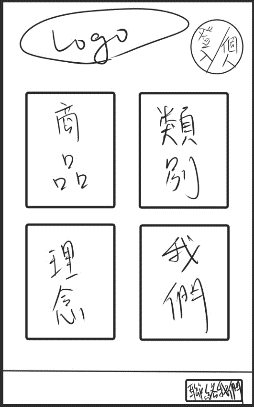 Logo
登入
個人
商品
類別
理念
我們
聯絡我們